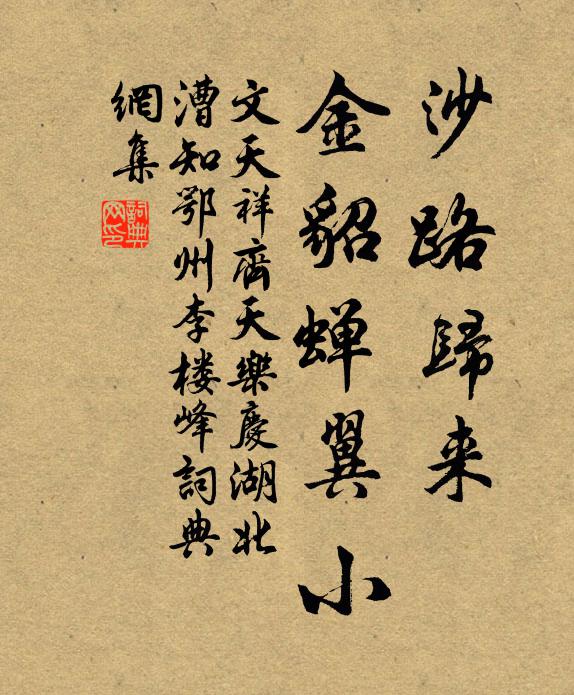 沙路歸来
金貂蝉翼小
文天祥齊天樂慶湖北
漕知鄂州李楼峰詞典
網集
詞典
网印